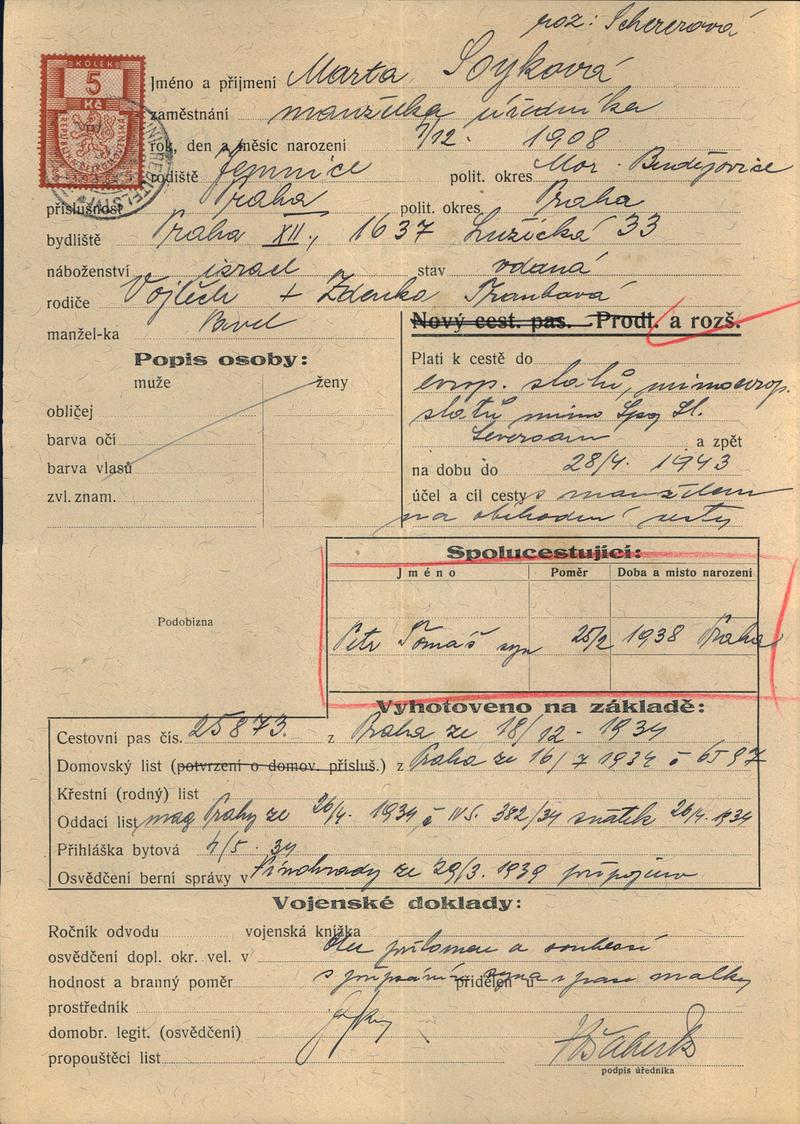 roz: Schererová
KOLEK
5
Kč
REPUBLIKA ČESKOSLOVENSKÁ
Jméno a příjmení Marta Soyková
zaměstnání manželka úředníka
rok, den a měsíc narození 7/12. 1908
rodiště Jemnice polit. okres Mor. Budějovice
příslušnost Praha polit. okres Praha
bydliště Praha XII., 1637 Lužická 33
náboženství israel stav vdaná
rodiče Vojtěch + Zdenka Traubová
manžel-ka Pavel
Nový cest. pas. Prodl. a rozš.
Popis osoby:
muže ženy
obličej
barva očí
barva vlasů
zvl. znam.
Platí k cestě do
evrop. států, mimoevrop.
států mimo
a zpět
na dobu do 28/4. 1943
účel a cíl cesty s manželem
na obchodní cesty
Spolucestující:
Jméno Poměr Doba a místo narození
Petr Tomáš syn 25/2 1938 Praha
Podobizna
Vyhotoveno na základě:
Cestovní pas čís. 25873. z Praha ze 18/12 - 1934
Domovský list (potvrzení o domov. přísluš.) z Praha ze 16/7 1934 č 6597
Křestní (rodný) list
Oddací list mag Prahy ze 26/4. 1934 č IVS. 382/34 sňatek 26/4. 1934
Přihláška bytová 4/5. 34
Osvědčení berní správy v Vinohrady ze 29/3. 1939 připojeno
Vojenské doklady:
Ročník odvodu vojenská knížka
osvědčení dopl. okr. vel. v Otec přítomen a souhlasí
hodnost a branný poměr s připsáním syna v pase matky
přidělen u
prostředník
domobr. legit. (osvědčení)
propouštěcí list
podpis úředníka